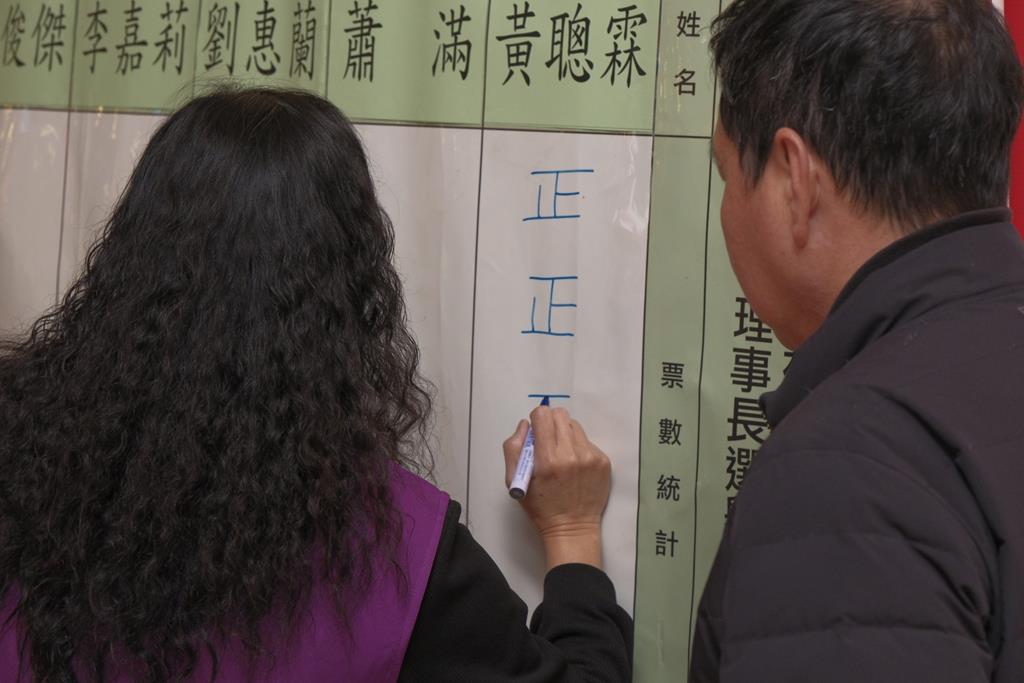 姓名
黃聰霖
蕭滿
劉惠蘭
李嘉莉
俊傑
票數統計
理事長選
正
正